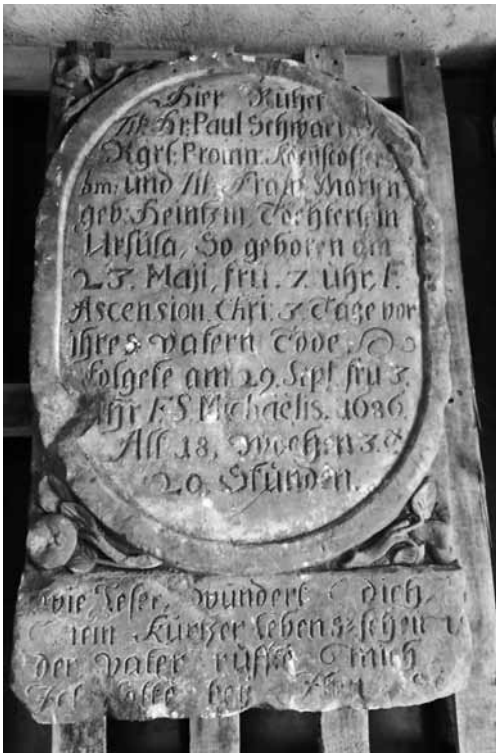 Hier Ruhet
Hr: Paul Schwar
Kgrl: Provin:
und Frau Marien
geb: Heintzin, Töchterlein
Ursula, So geboren am
23. Maji, fru. 7. uhr, F.
Ascension. Chri: 3 Tage vor
ihres vatern Tode,
Folgete am 29. Sept fru 3.
Uhr F. S. Michaëlis. 1686
Alt 18, Wochen 3.
20. Stunden.
wie Leser, wundert dich
mein Kurtzer lebens-schein
der vater ruffte mich
bey